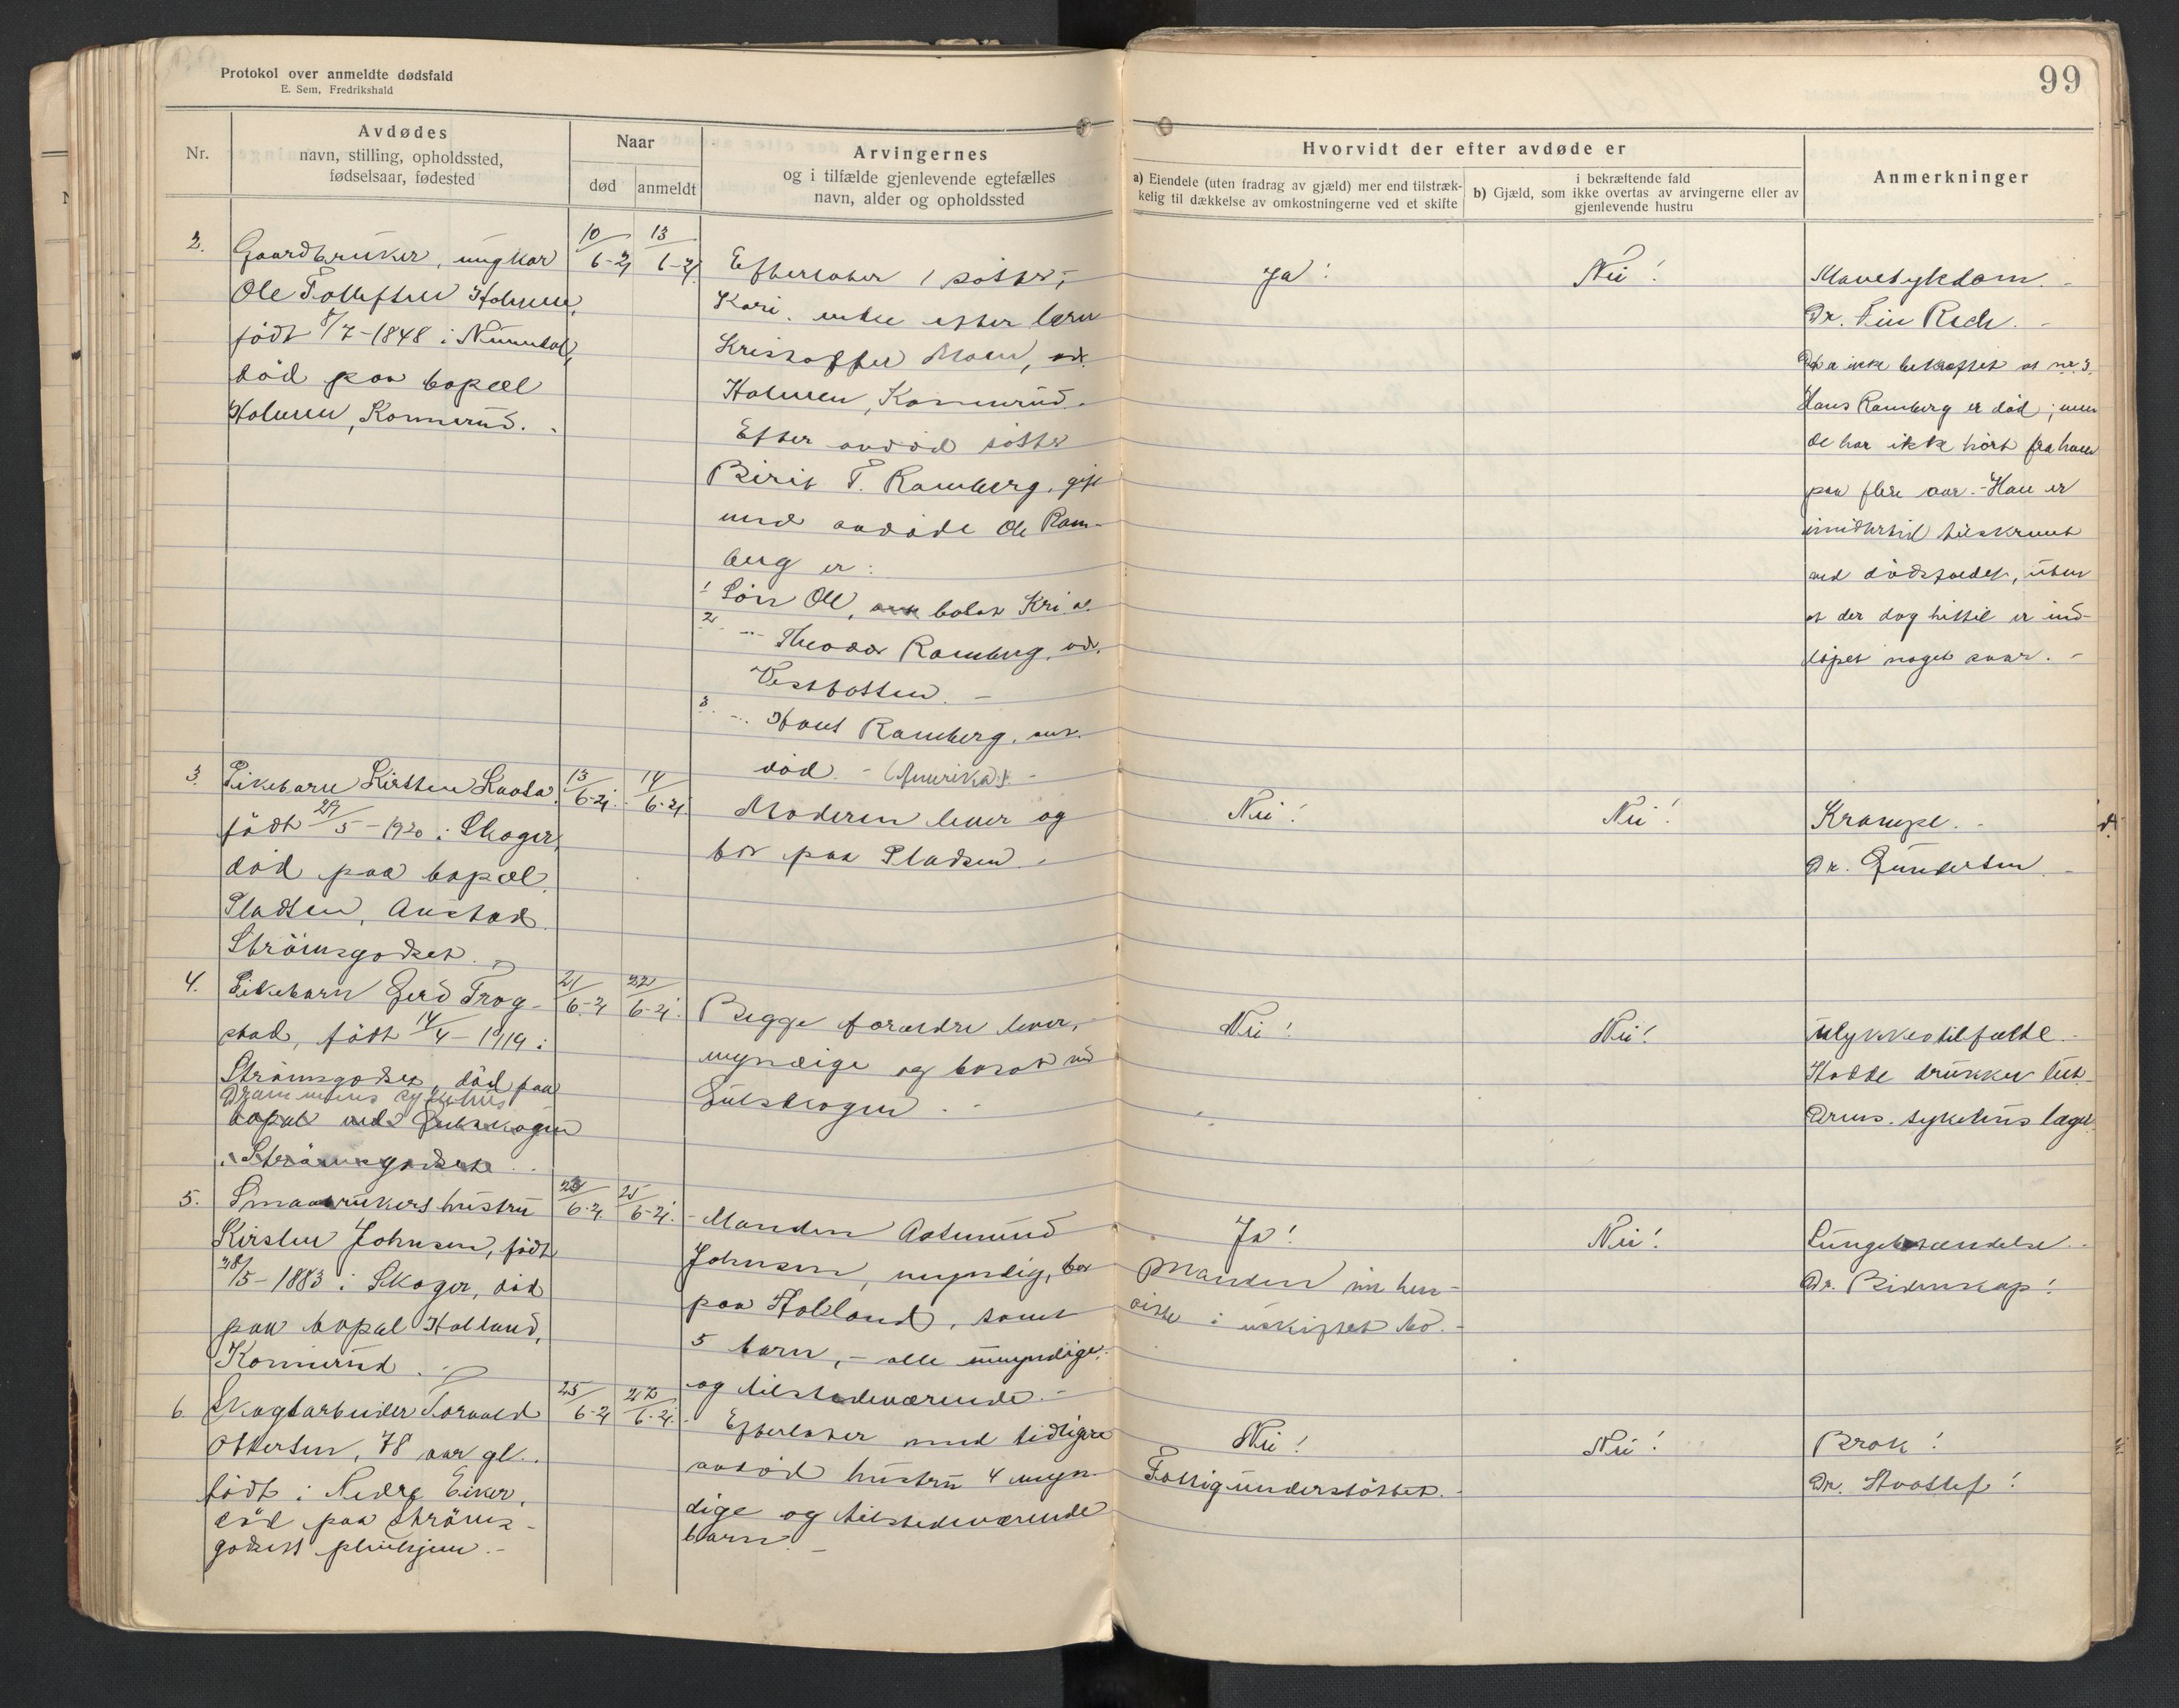 Protokol over anmeldte dødsfald
E. Sem, Fredrikshald
99
Nr.
Avdødes
navn, stilling, opholdssted,
fødselsaar, fødested
Naar
død
anmeldt
Arvingernes
og i tilfælde gjenlevende egtefælles
navn, alder og opholdssted
Hvorvidt der efter avdøde er
a) Eiendele (uten fradrag av gjæld) mer end tilstræk-
kelig til dækkelse av omkostningerne ved et skifte
i bekræftende fald
b) Gjæld, som ikke overtas av arvingerne eller av
gjenlevende hustru
Anmerkninger
2.
Gaardbruker, ungkar
Ole Tollefsen Holmen,
født 8/7-1848 i Numedal,
død paa bopæl
Holmen, Konnerud.
10/6-21
13/6-21
Efterlater 1 søster,
Kari, enke efter lærer
Kristoffer Moen, adr.
Holmen, Konnerud.
Efter avdød søster
Birit T. Ramberg, gift
med avdøde Ole Ram-
berg er:
1 Søn Ole, bosat Kri.a.
2. -"- Theodor Ramberg, adr.
Vestfossen. -
3. -"- Hans Ramberg, ant.
død. - (Amerika). -
Ja!
Nei!
Mavesykdom. -
Dr. Fin Rech. -
Det er ikke bekræftet at nr. 3.
Hans Ramberg er død; men
de har ikke hørt fra ham
paa flere aar. - Han er
imidlertid tilskrevet
om dødsfaldet, uten
at der dog hittil er ind-
løpet noget svar. -
3
Pikebarn Kirsten Kaasa.
født 29/5-1920 i Skoger,
død paa bopæl
Pladsen, Austad
Strømsgodset.
13/6-21.
14/6-21
Moderen lever og
bor paa Pladsen. -
Nei!
Nei!
Krampe. -
Dr. Gundersen. -
4.
Pikebarn Gerd Trog-
stad, født 14/4-1919 i
Strømsgodset, død paa
Drammens sykehus
bopæl ved Gulskogen
i Strømsgodset.
21/6-21
22/6-21.
Begge forældre lever,
myndige og bosat ved
Gulskogen. -
Nei!
Nei!
Ulykkestilfælde. -
Hadde drukket lut.
Drms. sykehus læge.
5.
Smaabrukers hustru
Kirsten Johnsen, født
28/5-1883 i Skoger, død
paa bopæl Holland,
Konnerud.
23/6-21
25/6-21.
Manden Aasmund
Johnsen, myndig, bor
paa Holland, samt
5 barn, - alle umyndige
og tilstedeværende. -
Ja!
Manden vil hen-
sitte i uskiftet bo. -
Nei!
Lungebetændelse.
Dr. Bidenkap!
6.
Skogsarbeider Torvald
Ottersen, 78 aar gl.
født i Nedre Eiker,
død paa Strøms-
godsets pleiehjem. -
25/6-21
27/6-21.
Efterlater med tidligere
avdød hustru 4 myn-
dige og tilstedeværende
barn. -
Nei!
Fattigunderstøttet. -
Nei!
Brok!